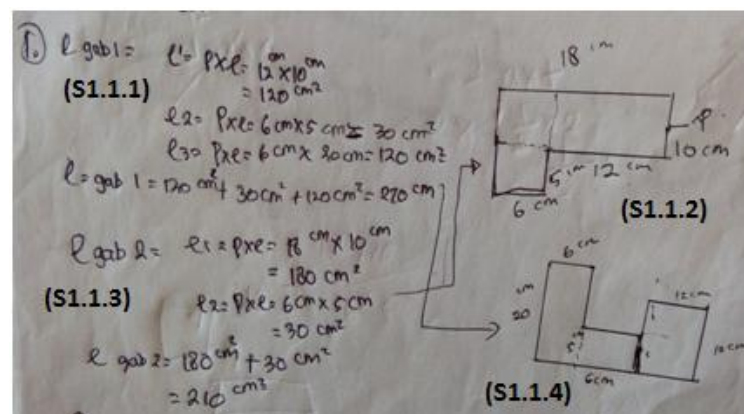 1. l gab 1 = l1 = pxl = 12 cm x 10 cm
(S1.1.1)
= 120 cm²
l2 = pxl = 6 cm x 5 cm = 30 cm²
l3 = pxl = 6 cm x 20 cm = 120 cm²
l = gab 1 = 120 cm² + 30 cm² + 120 cm² = 270 cm
l gab 2 = l1 = pxl = 18 cm x 10 cm
= 180 cm²
(S1.1.3)
l2 = pxl = 6 cm x 5 cm
= 30 cm²
l gab 2 = 180 cm² + 30 cm²
= 210 cm²
18 cm
10 cm
5 cm 12 cm
6 cm
(S1.1.2)
6 cm
12 cm
cm
20
5
6 cm
(S1.1.4)